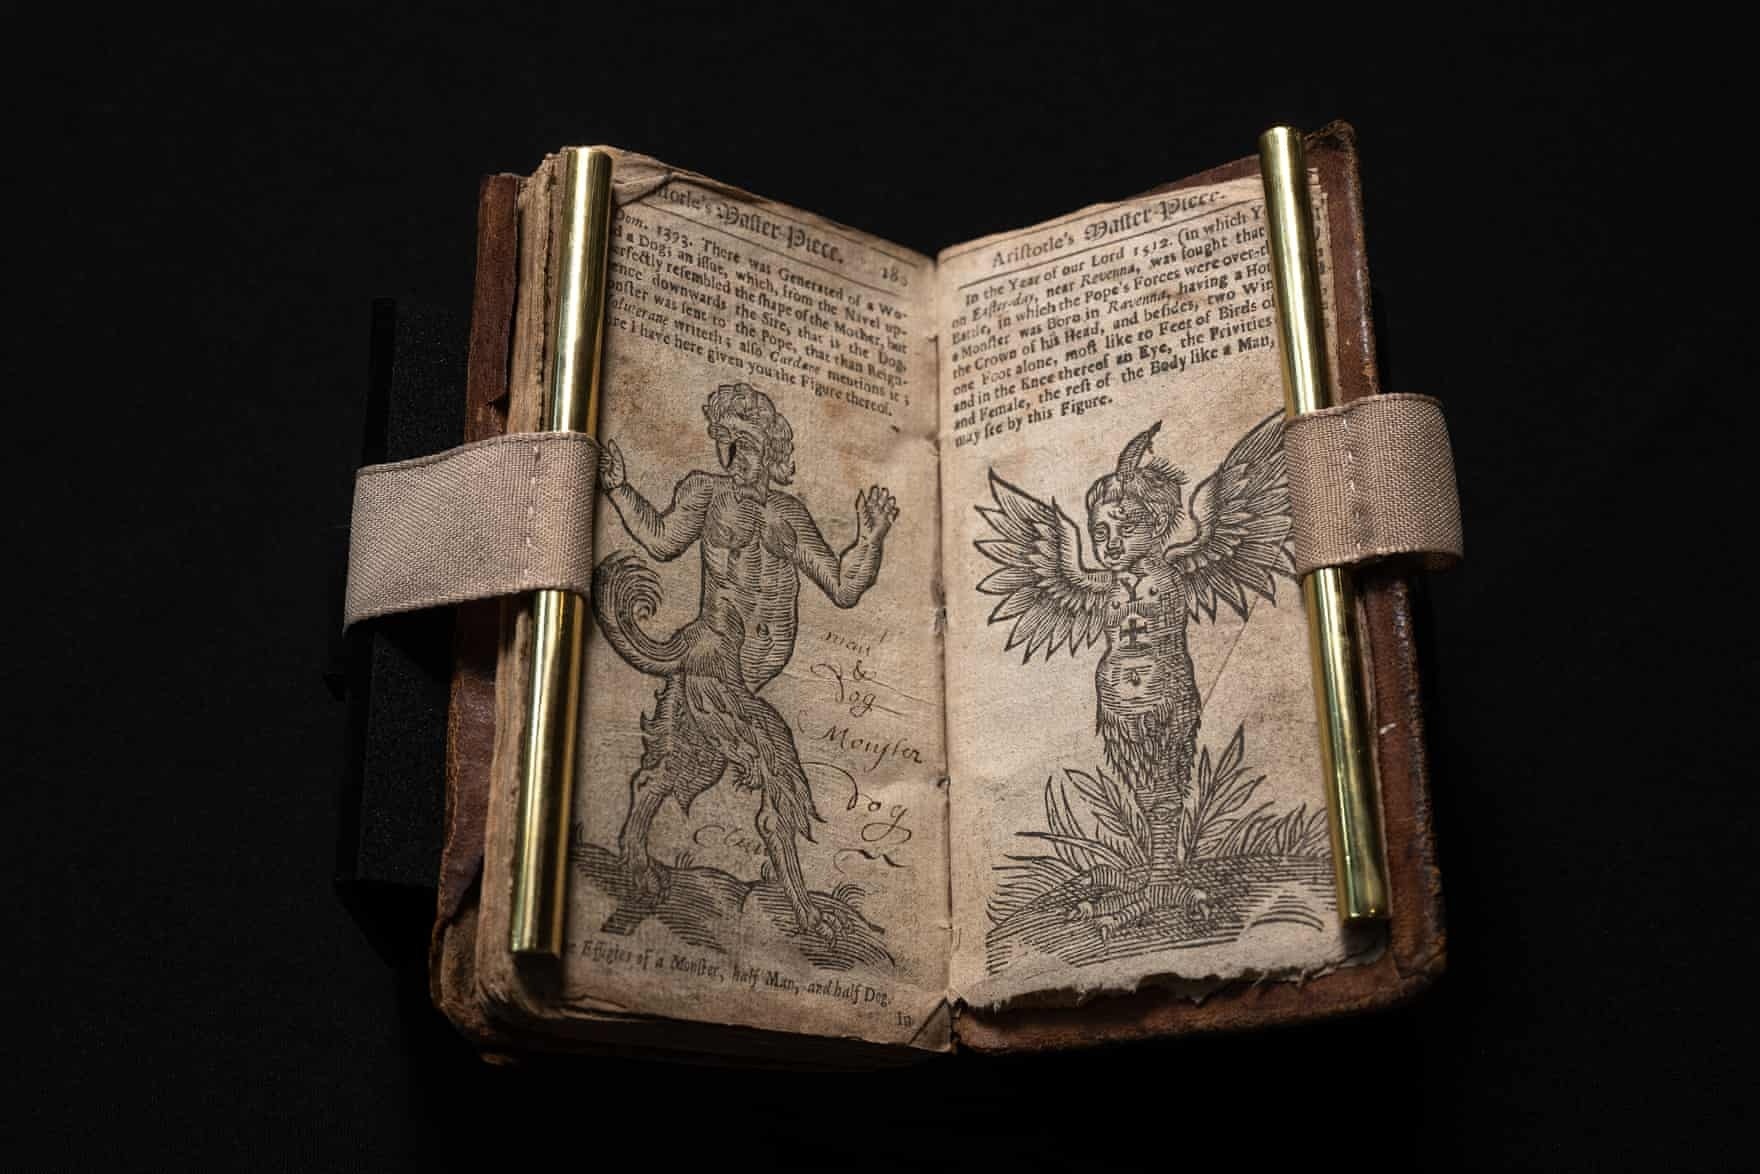 Master-Piece. 180
Dom. 1393. There was Generated of a Wo-
a Dog; an issue, which, from the Navel up-
perfectly resembled the shape of the Mother, but
downwards the Sire, that is the Dog.
was sent to the Pope, that than Reign-
writeth; also Cardane mentions it;
I have here given you the Figure thereof.
&
Dog
Monster
Dog
Effigies of a Monster, half Man, and half Dog.
In
Aristotle's Master-Piece.
In the Year of our Lord 1512. (in which
on Easter-day, near Revenna, was fought that
Battle, in which the Pope's Forces were
a Monster was Born in Ravenna, having a
the Crown of his Head, and besides, two
one Foot alone, most like to Feet of Birds of
and in the Knee thereof an Eye, the Privities
and Female, the rest of the Body like a Man,
may see by this Figure.
Y